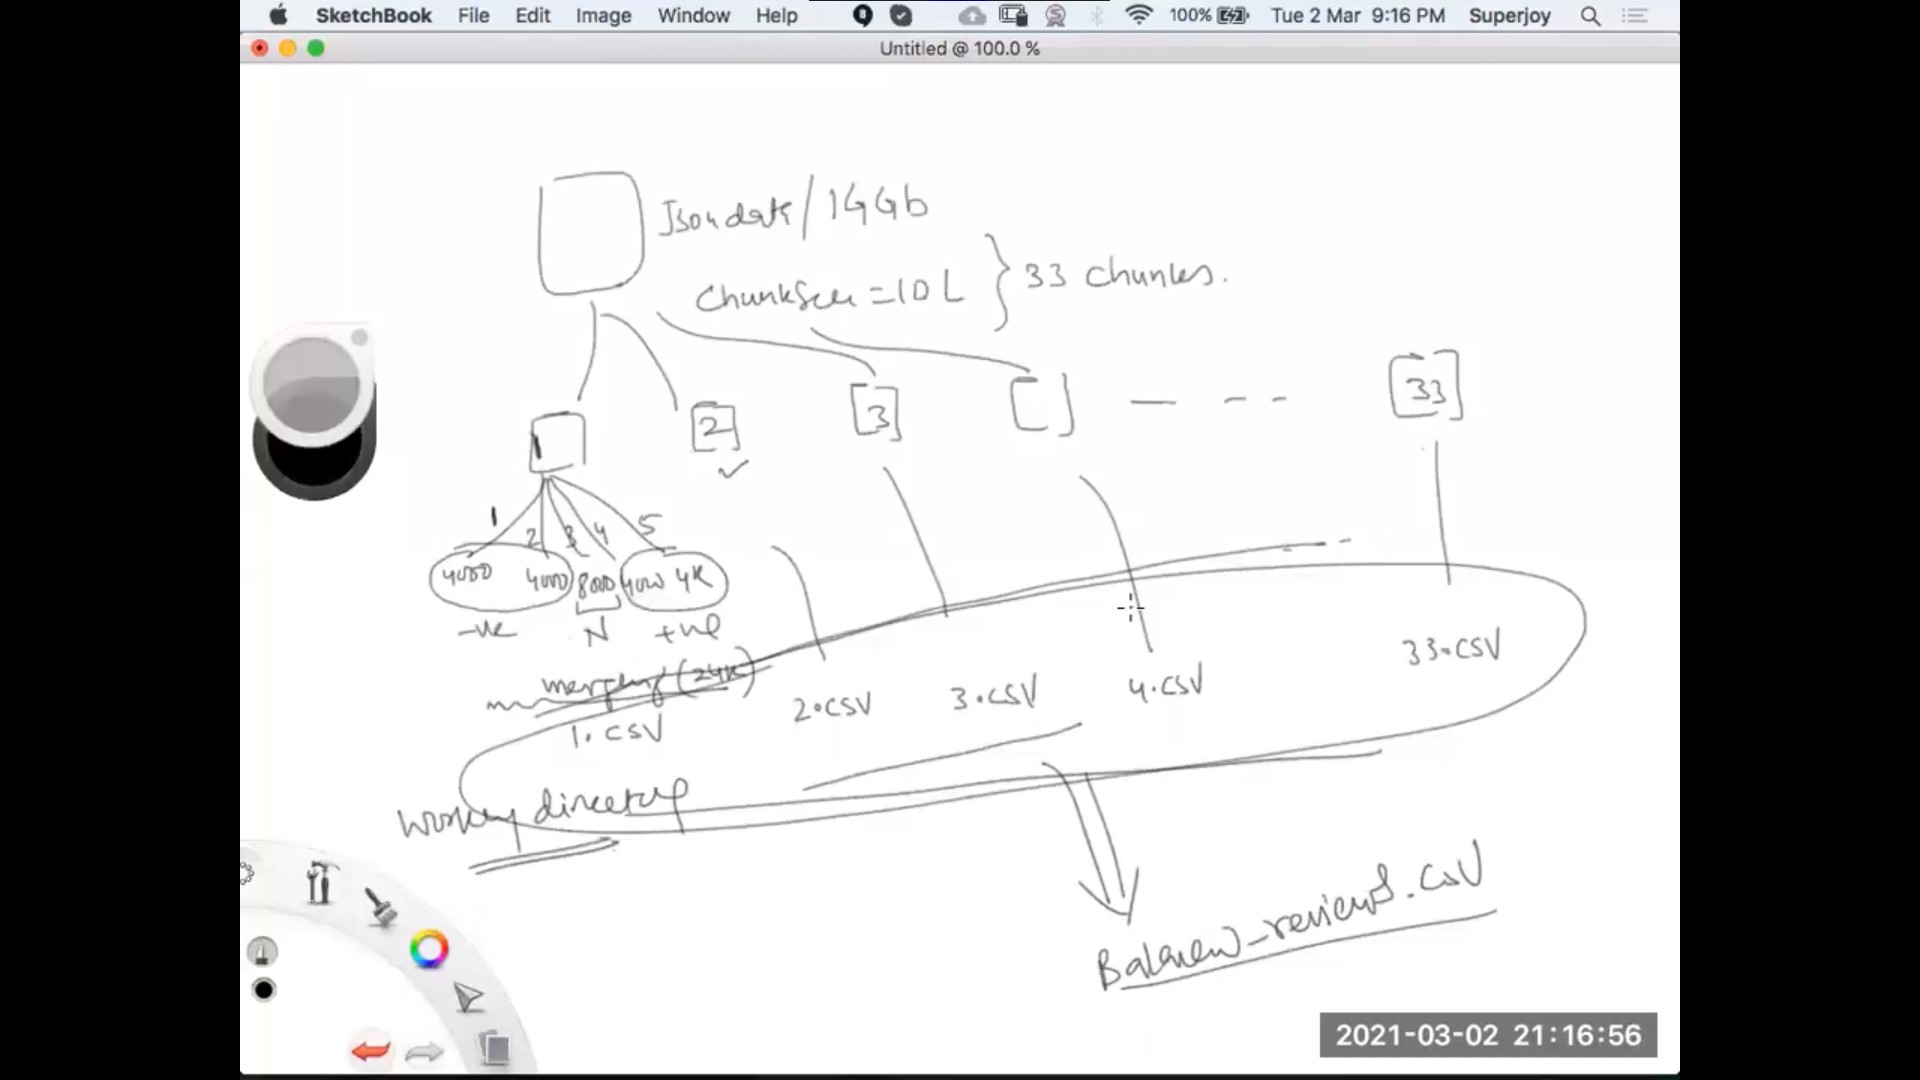 SketchBook File Edit Image Window Help 100% Tue 2 Mar 9:16 PM Superjoy
Untitled @ 100.0 %
Json data / 14Gb
= 10 L } 33 chunks.
1 2 3 33
1 2 3 4 5
4000 4000 8000 4000 4K
-ve N +ve
merging (24K)
1.CSV 2.CSV 3.CSV 4.CSV 33.CSV
directory
reviews.csv
2021-03-02 21:16:56